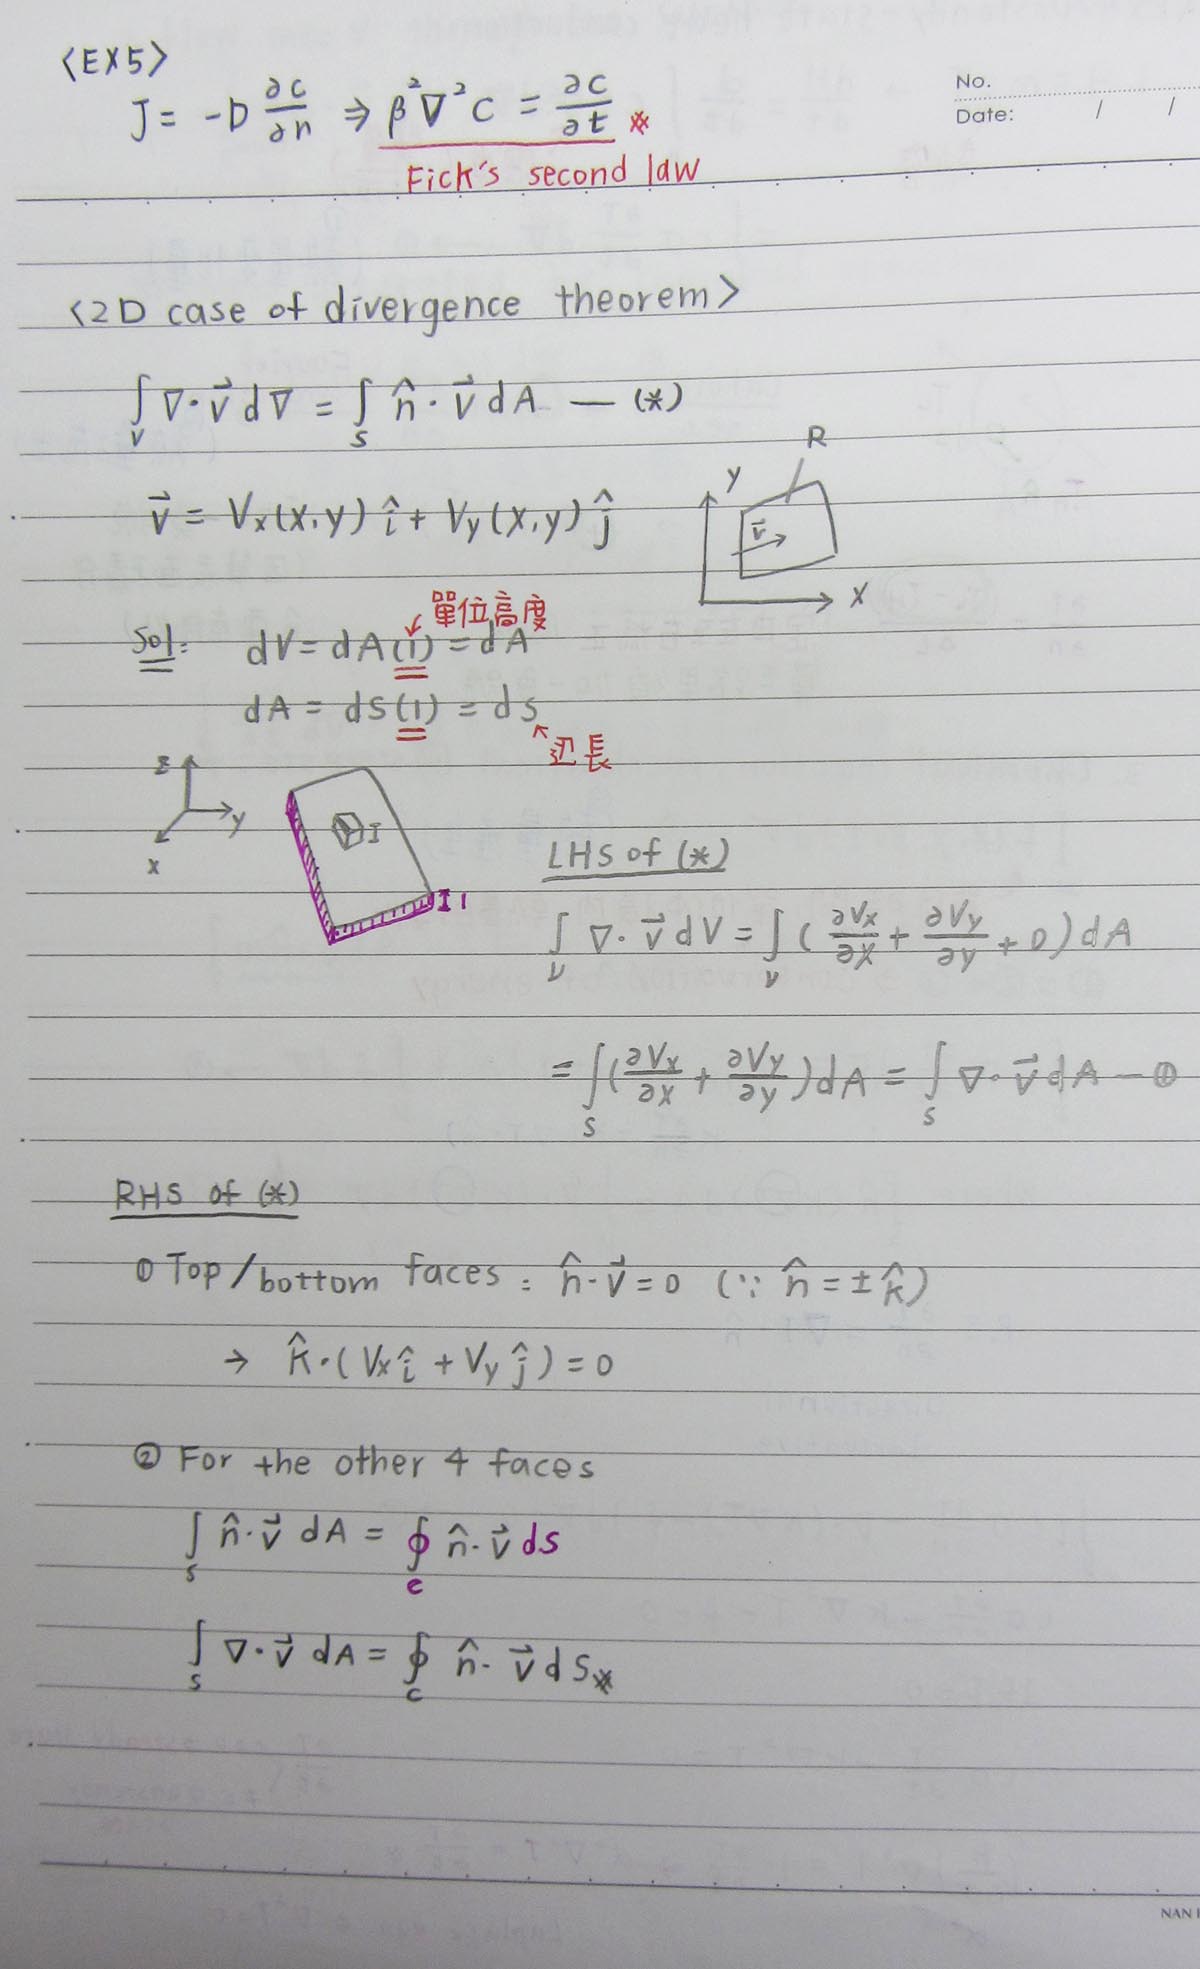 <EX5>
No.
Date: / /
J = -D ∂C/∂n ⇒ β²∇²C = ∂C/∂t *
Fick's second law
<2D case of divergence theorem>
∫_V ∇·v⃗ d∇ = ∫_S n̂·v⃗ dA — (*)
R
y
v⃗
x
v⃗ = Vx(x,y) î + Vy(x,y) ĵ
單位高度
Sol: dV = dA(1) = dA
dA = ds(1) = ds
边長
z
y
x
I
1
LHS of (*)
∫_V ∇·v⃗ dV = ∫_V (∂Vx/∂x + ∂Vy/∂y + 0) dA
= ∫_S (∂Vx/∂x + ∂Vy/∂y) dA = ∫_S ∇·v⃗ dA — ①
RHS of (*)
① Top/bottom faces: n̂·v⃗ = 0 (∵ n̂ = ±k̂)
→ k̂·(Vx î + Vy ĵ) = 0
② For the other 4 faces
∫_S n̂·v⃗ dA = ∮_C n̂·v⃗ ds
∫_S ∇·v⃗ dA = ∮_C n̂·v⃗ ds *